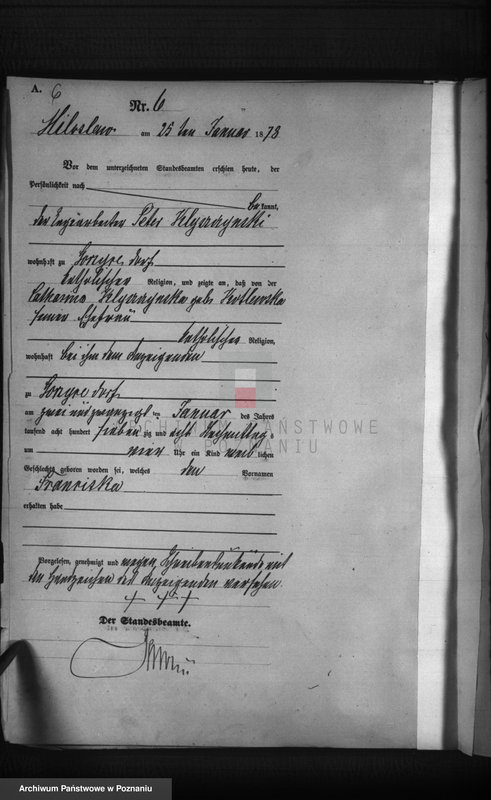 A. 6
Nr. 6
Miloslaw am 25 ten Januar 1878
Vor dem unterzeichneten Standesbeamten erschien heute, der
Persönlichkeit nach
be kannt,
der Peter
wohnhaft zu dorf
katholischer Religion, und zeigte an, daß von der
Catharina geb.
seiner Ehefrau
katholischer Religion,
wohnhaft bei ihm dem Anzeigenden
zu dorf
am zwei und zwanzigsten Januar des Jahres
tausend acht hundert sieben zig und acht Nachmittags
um vier Uhr ein Kind weib lichen
Geschlechts geboren worden sei, welches den Vornamen
Franciska
erhalten habe
Vorgelesen, genehmigt und wegen Schreibensunkunde mit
den Handzeichen des Anzeigenden versehen
+ + +
Der Standesbeamte.
ARCHIWUM PAŃSTWOWE
W POZNANIU
Archiwum Państwowe w Poznaniu